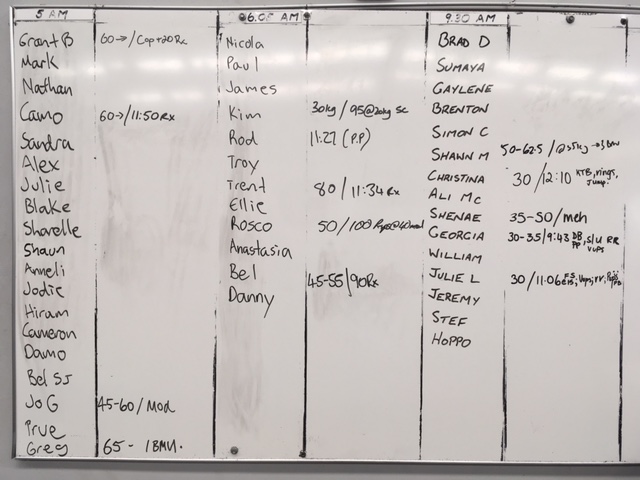 5 AM
Grant B 60→/Cap+20Rx
Mark
Nathan
Camo 60→/11:50Rx
Sandra
Alex
Julie
Blake
Sharelle
Shaun
Anneli
Jodie
Hiram
Cameron
Damo
Bel SJ
Jo G 45-60/Mod
Prue
Greg 65-
6.05 AM
Nicola
Paul
James
Kim 30kg/95@20kg sc
Rod 11:27 (P.P)
Troy
Trent 80/11:34Rx
Ellie
Rosco 50/100
Anastasia
Bel 45-55/90Rx
Danny
9:30 AM
BRAD D
SUMAYA
GAYLENE
BRENTON
SIMON C
SHAWN M 50-62.5/
CHRISTINA 30/12:10 KTB, rings, Jump.
ALI MC
SHENAE 35-50/meh
GEORGIA 30-35/9:43 DB PP, S/U RR
WILLIAM
JULIE L 30/11:06
JEREMY
STEF
HOPPO